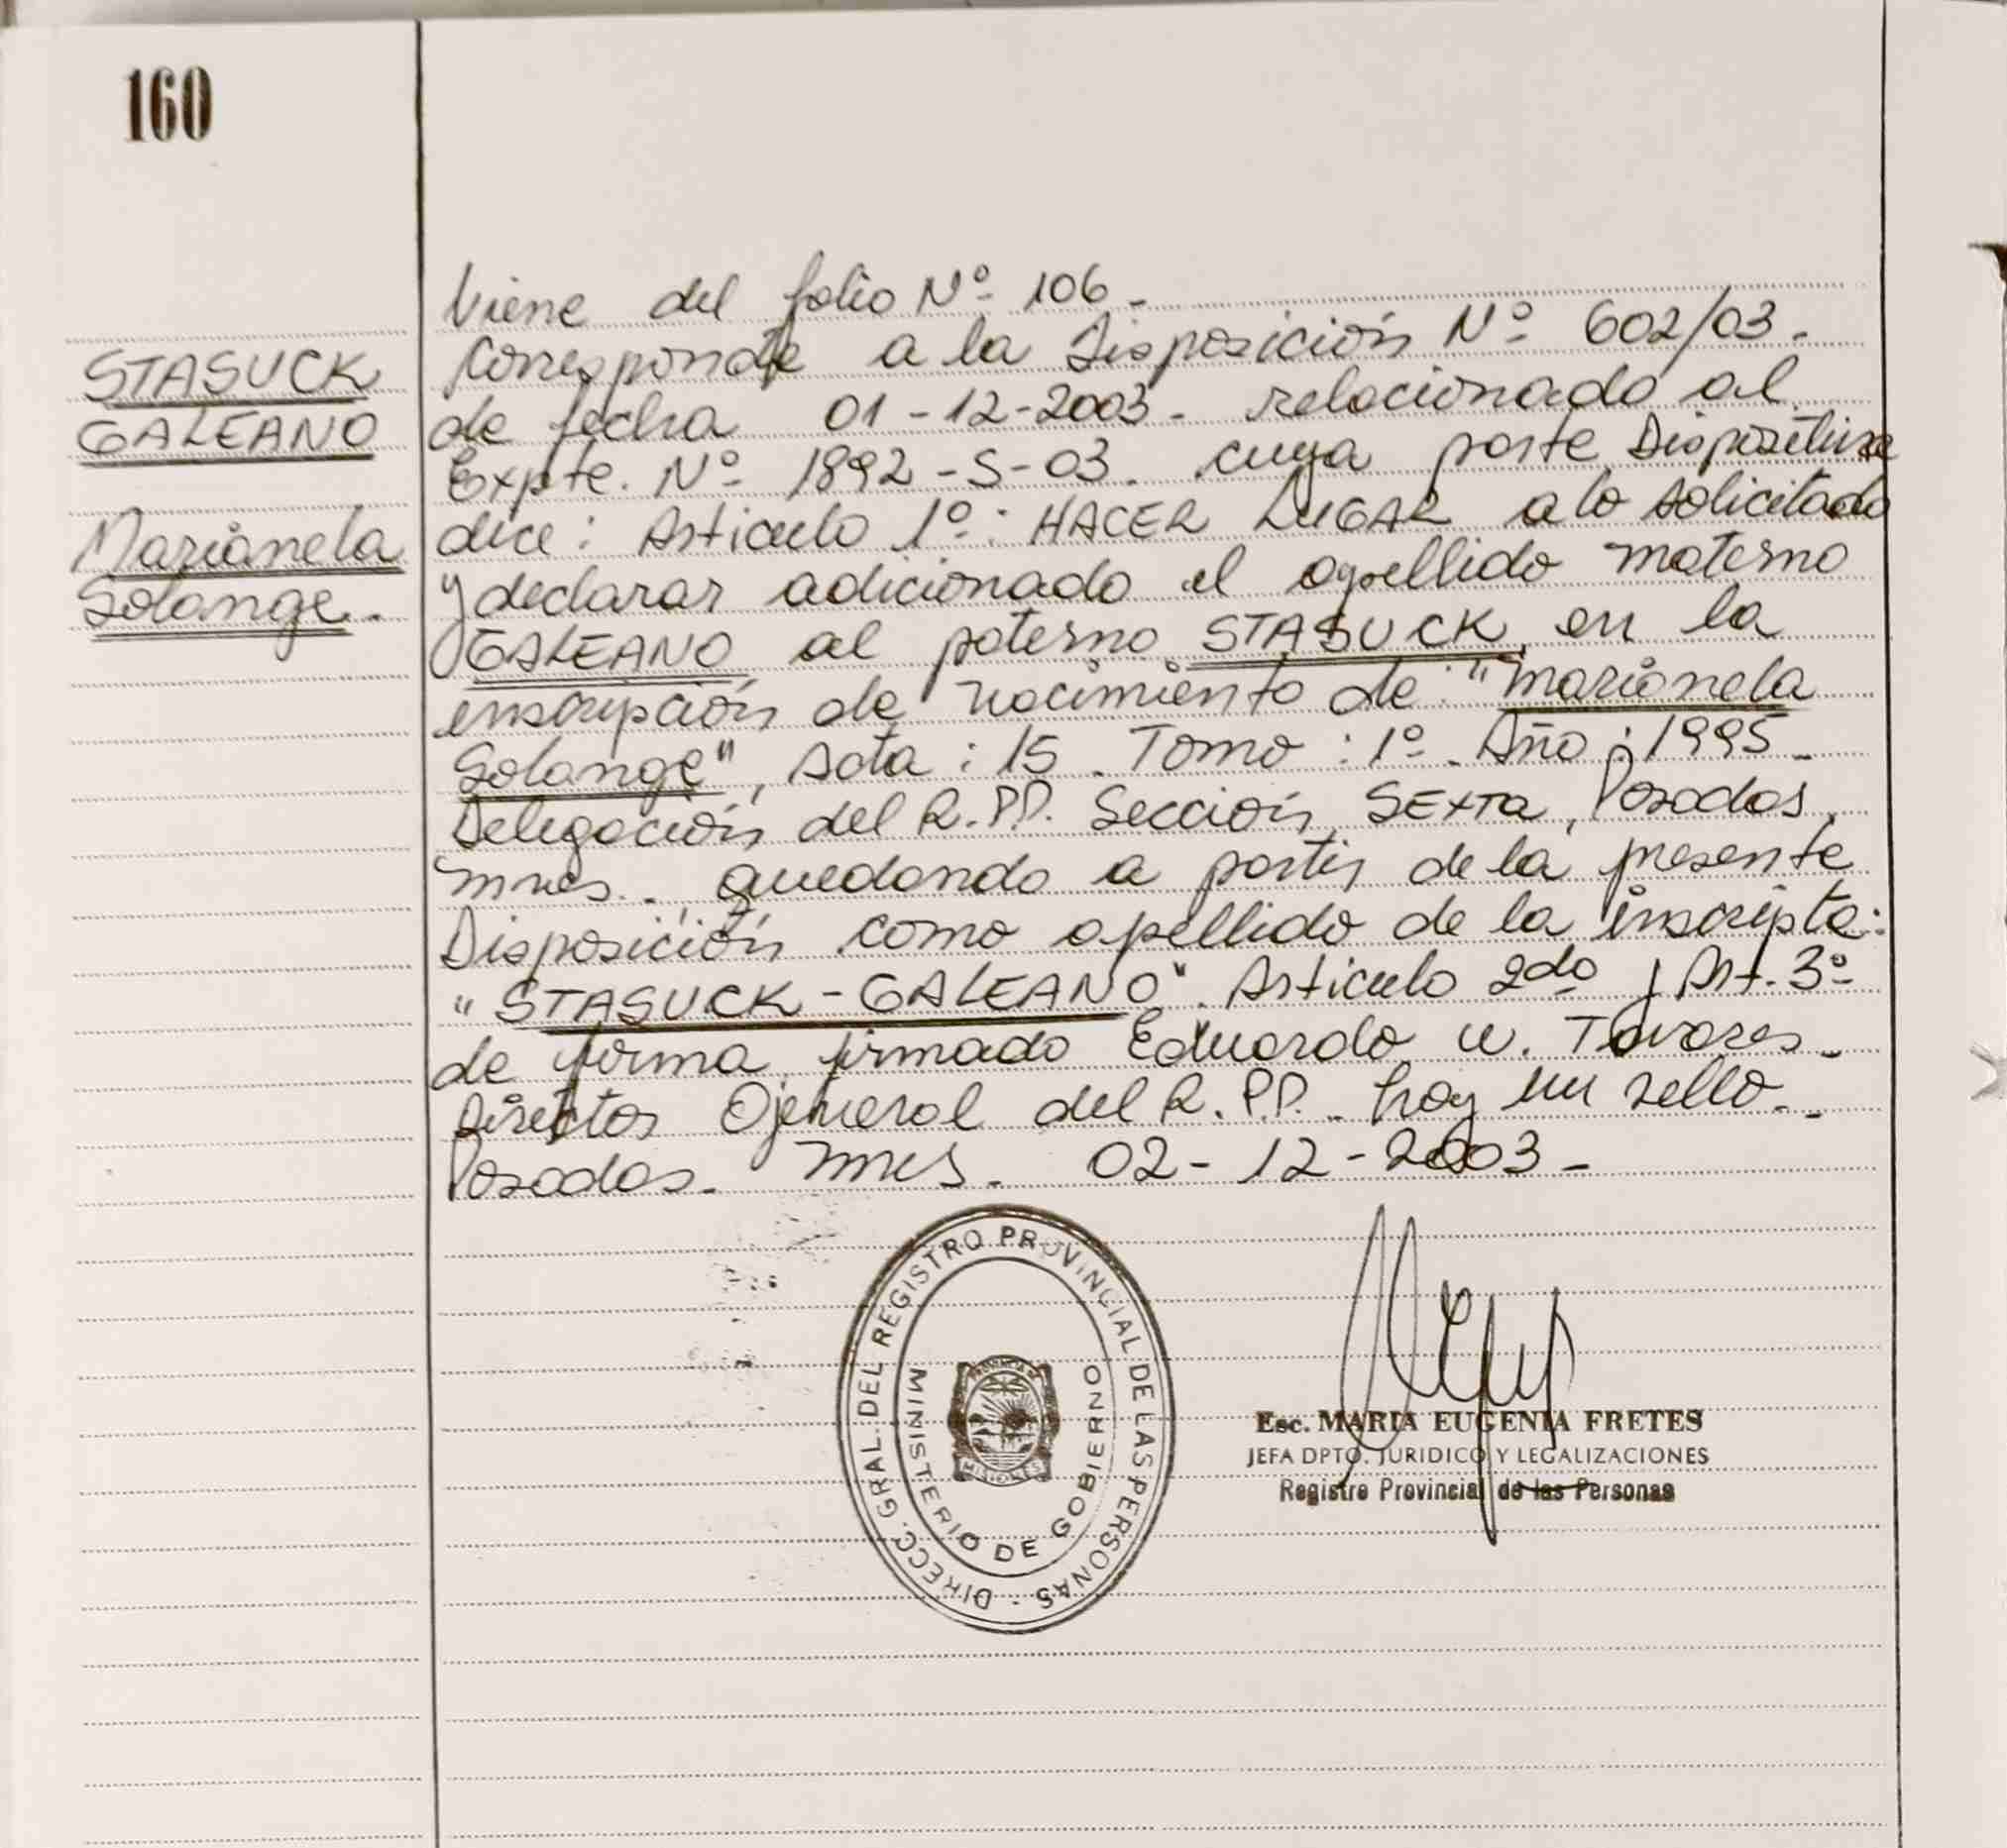 160
STASUCK
GALEANO
Marianela
Solange.-
Viene del folio Nº 106.-
Corresponde a la Disposición Nº 602/03.-
de fecha 01-12-2003- relacionado al
Expte. Nº 1892-S-03. cuya parte Dispositiva
dice: Articulo 1º: HACER LUGAR a lo solicitado
y declarar adicionado el apellido materno
GALEANO al paterno STASUCK, en la
inscripción de nacimiento de: "Marianela
Solange", Acta: 15. Tomo: 1º. Año: 1995-
Delegación del R.P.P. Sección SEXTA, Posadas,
Mnes.- quedando a partir de la presente
Disposición como apellido de la inscripta:
"STASUCK-GALEANO". Articulo 2do y Art. 3º
de forma firmado Eduardo W. Tavares-
Director General del R.P.P.- hay un sello.-
Posadas. Mnes. 02-12-2003-
DIRECC. GRAL. DEL REGISTRO PROVINCIAL DE LAS PERSONAS -
MINISTERIO DE GOBIERNO
PROVINCIA D
MISIONES
Esc. MARIA EUGENIA FRETES
JEFA DPTO. JURIDICO Y LEGALIZACIONES
Registro Provincial de las Personas